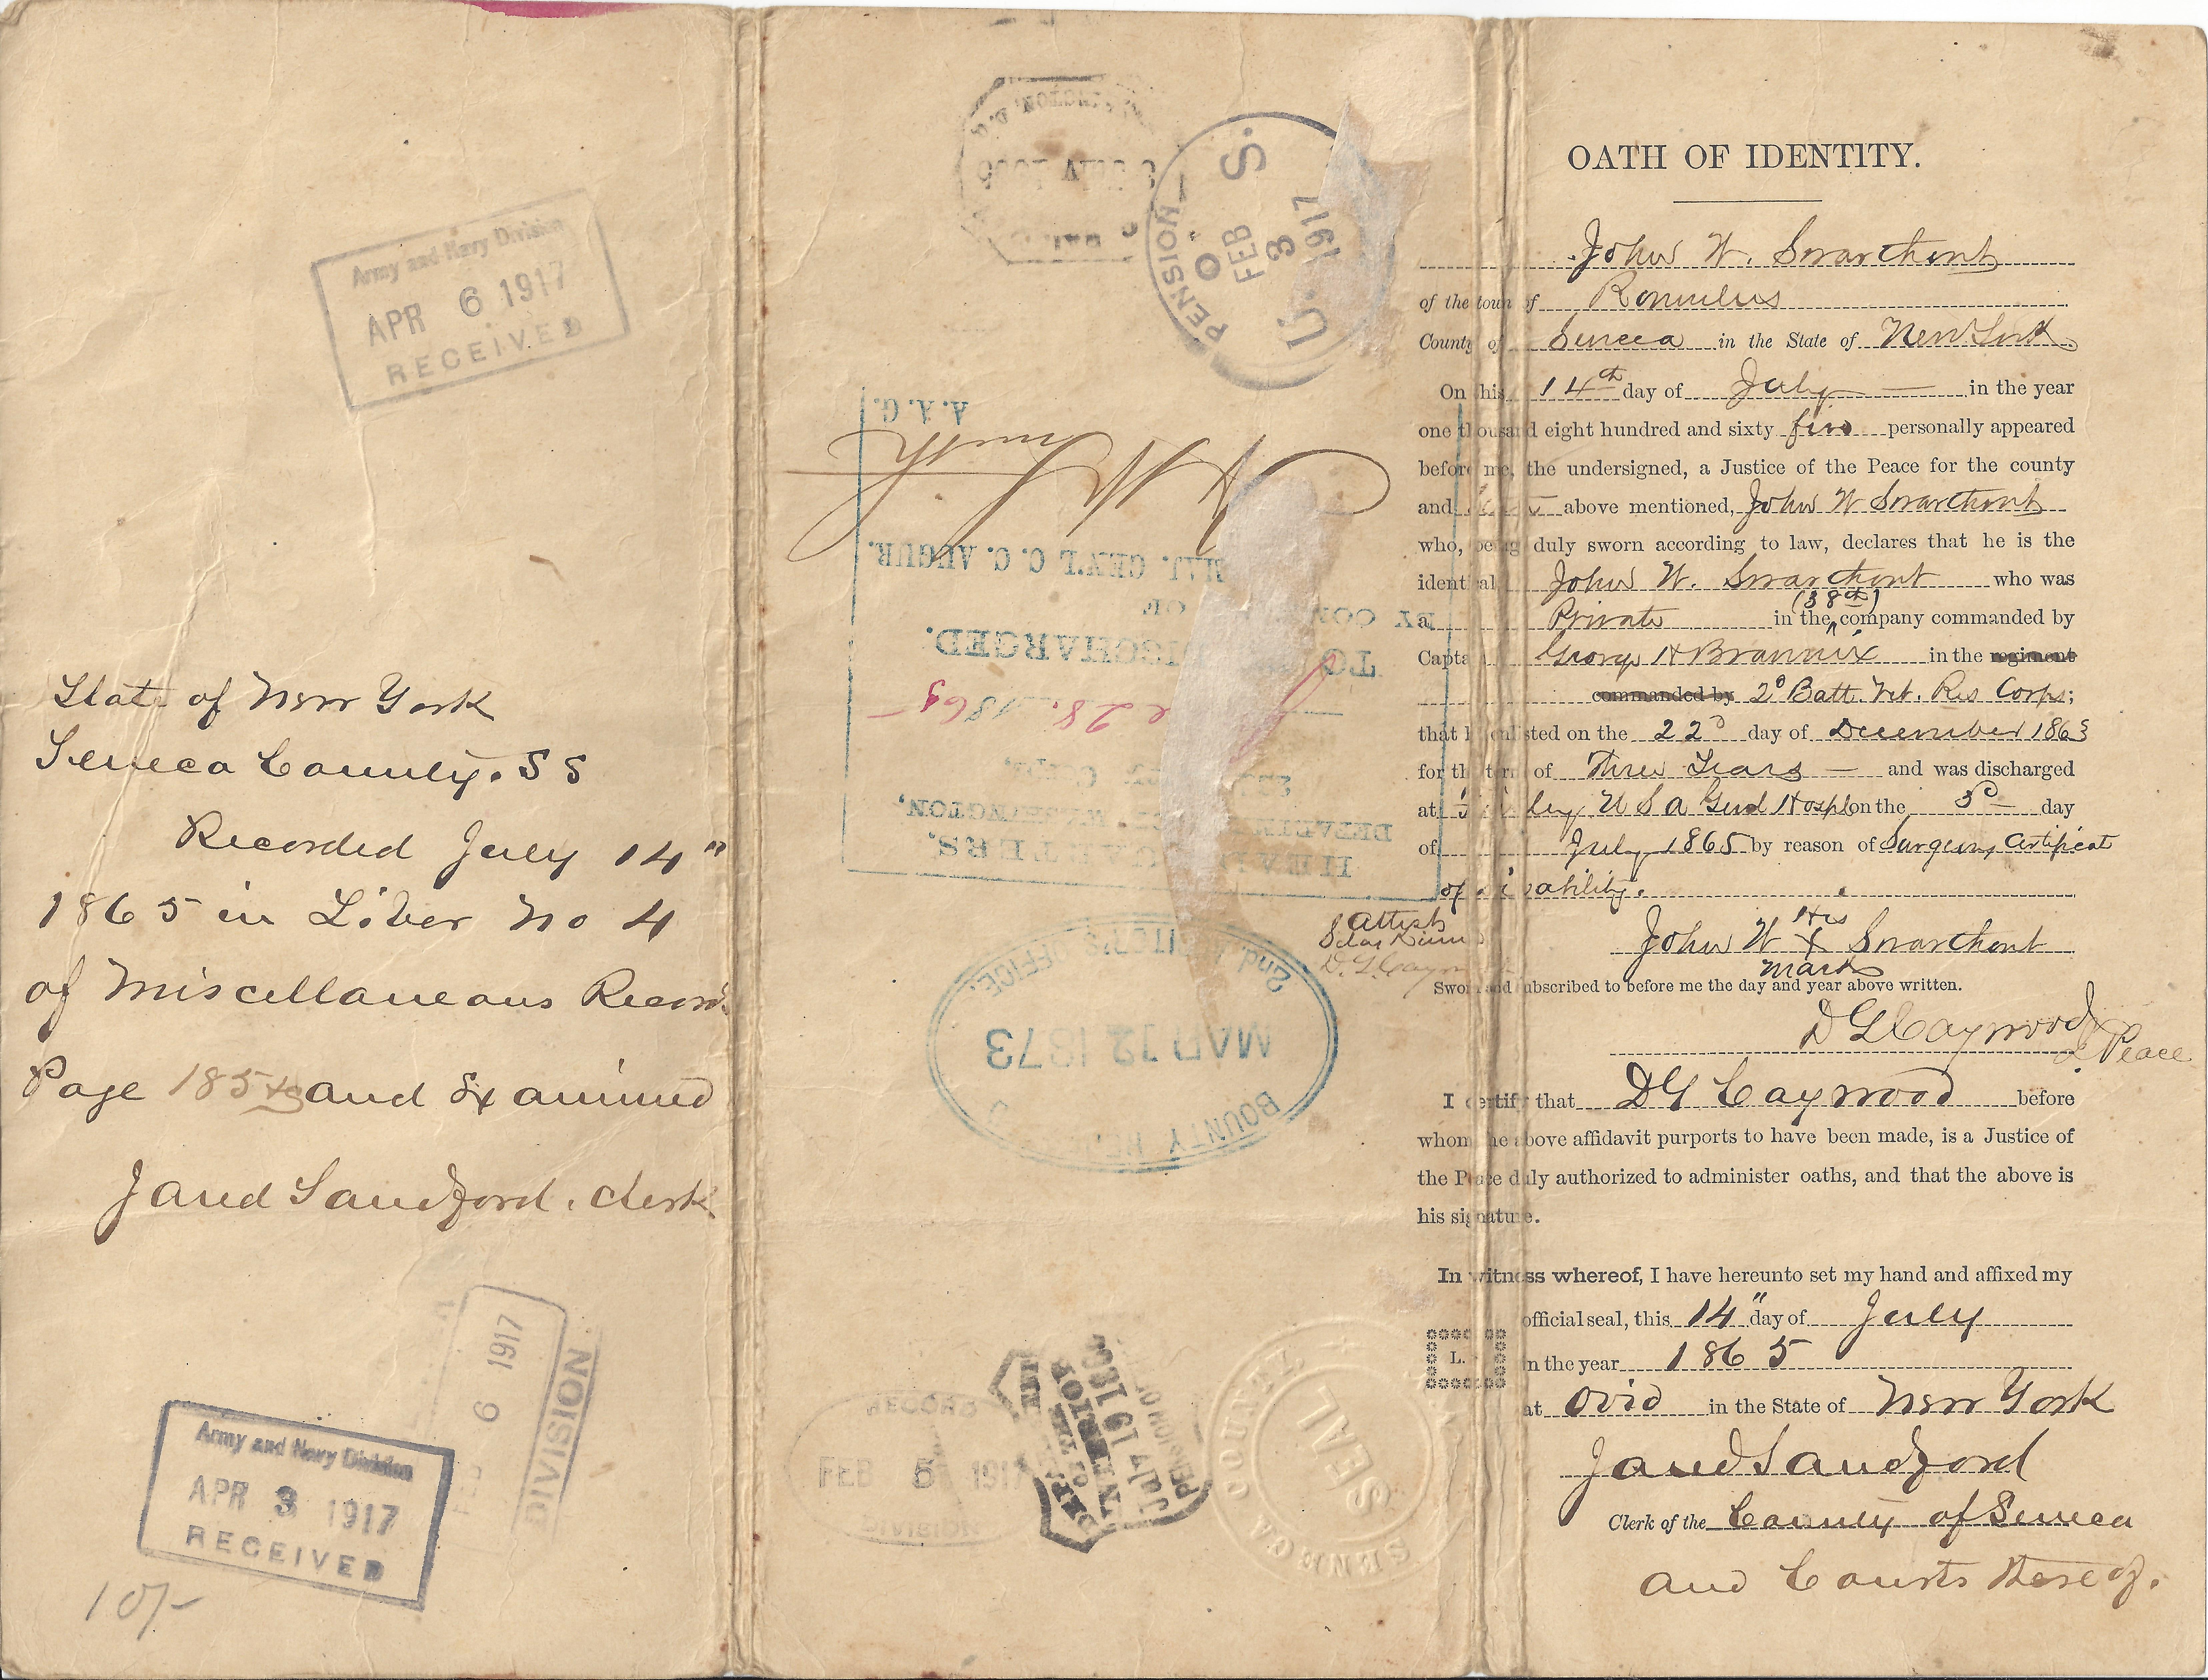 State of New York
Seneca County. SS
Recorded July 14"
1865 in Liber No 4
of Miscellaneous Records
Page 185 and Examined
Sandford. Clerk
Army and Navy Division
APR 6 1917
RECEIVED
6 1917
DIVISION
Army and Navy Division
APR 3 1917
RECEIVED
10/-
U. S.
PENSION O
FEB 3 1917
A. A. G.
MAJ. GEN'L C. C. AUGUR.
OF
BY COM
TO DISCHARGED.
e 28. 1865
WASHINGTON,
2nd AUDITOR'S OFFICE.
MAR 12 1873
BOUNTY
RECORD
FEB 5 191
DIVISION
DEPT OF THE INTERIOR
JUL 19 188
PENSION OF
SENECA COUNTY
SEAL
OATH OF IDENTITY.
John W. Swarthout
of the town of Romulus
County of Seneca in the State of New York
On this 14th day of July in the year
one thousand eight hundred and sixty five personally appeared
before me, the undersigned, a Justice of the Peace for the county
and above mentioned, John W Swarthout
who, being duly sworn according to law, declares that he is the
identical John W. Swarthout who was
a Private in the (38th) company commanded by
Captain George H in the regiment
commanded by 2d Batt. Vet. Res Corps;
that he enlisted on the 22d day of December 1863
for the term of Three Years and was discharged
at U S A Genl Hospl on the 3d day
of July 1865 by reason of Surgeons Certificat
of disability.
Attest
D. G. Caywood
John W His X mark Swarthout
Sworn and subscribed to before me the day and year above written.
D G Caywood J of Peace
I certify that D G Caywood before
whom the above affidavit purports to have been made, is a Justice of
the Peace duly authorized to administer oaths, and that the above is
his signature.
In witness whereof, I have hereunto set my hand and affixed my
official seal, this 14" day of July
L. in the year 1865
at Ovid in the State of New York
Sandford
Clerk of the County of Seneca
and Courts thereof.